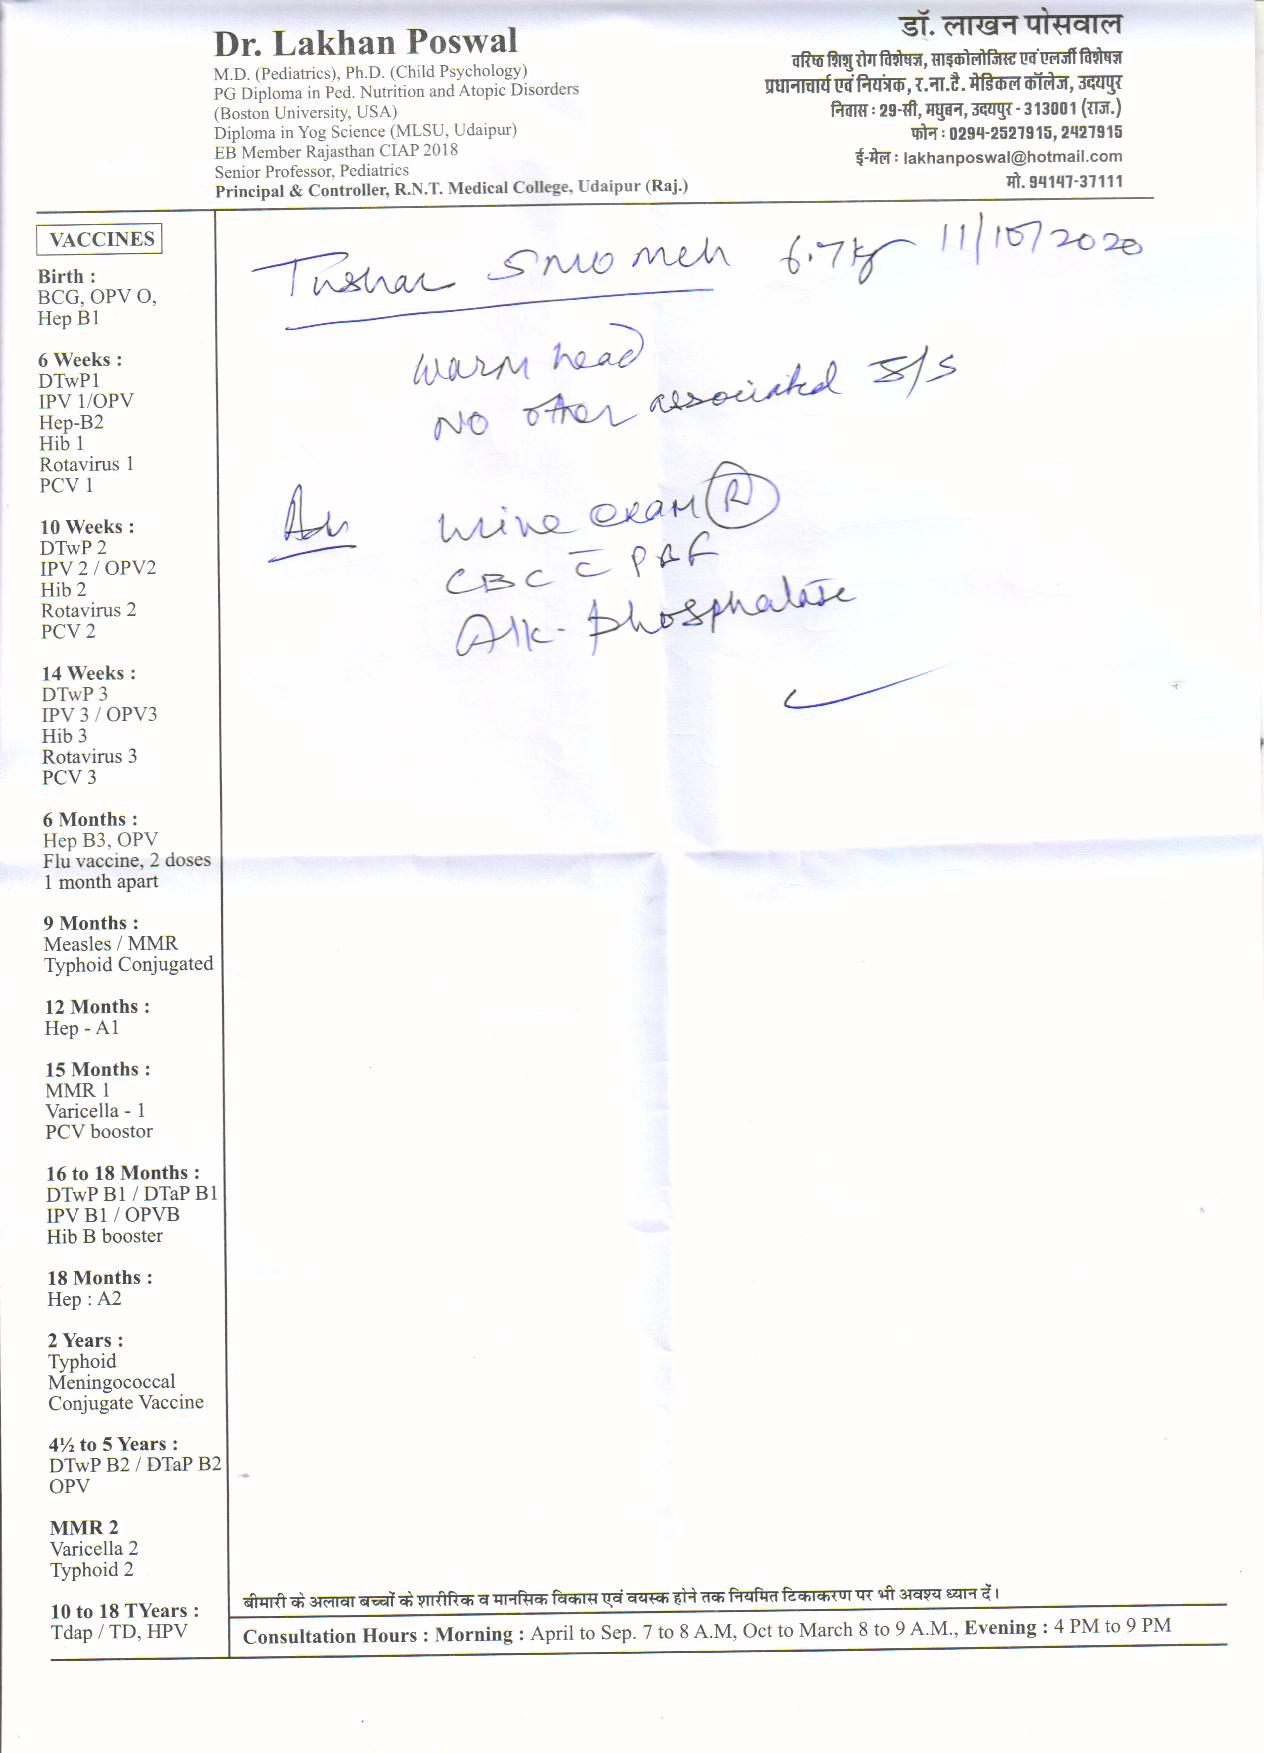 Dr. Lakhan Poswal
M.D. (Pediatrics), Ph.D. (Child Psychology)
PG Diploma in Ped. Nutrition and Atopic Disorders
(Boston University, USA)
Diploma in Yog Science (MLSU, Udaipur)
EB Member Rajasthan CIAP 2018
Senior Professor, Pediatrics
Principal & Controller, R.N.T. Medical College, Udaipur (Raj.)
डॉ. लाखन पोसवाल
वरिष्ठ शिशु रोग विशेषज्ञ, साइकोलोजिस्ट एवं एलर्जी विशेषज्ञ
प्रधानाचार्य एवं नियंत्रक, र.ना.टै. मेडिकल कॉलेज, उदयपुर
निवास : 29-सी, मधुबन, उदयपुर - 313001 (राज.)
फोन : 0294-2527915, 2427915
ई-मेल : lakhanposwal@hotmail.com
मो. 94147-37111
VACCINES
Birth :
BCG, OPV O,
Hep B1
6 Weeks :
DTwP1
IPV 1/OPV
Hep-B2
Hib 1
Rotavirus 1
PCV 1
10 Weeks :
DTwP 2
IPV 2 / OPV2
Hib 2
Rotavirus 2
PCV 2
14 Weeks :
DTwP 3
IPV 3 / OPV3
Hib 3
Rotavirus 3
PCV 3
6 Months :
Hep B3, OPV
Flu vaccine, 2 doses
1 month apart
9 Months :
Measles / MMR
Typhoid Conjugated
12 Months :
Hep - A1
15 Months :
MMR 1
Varicella - 1
PCV boostor
16 to 18 Months :
DTwP B1 / DTaP B1
IPV B1 / OPVB
Hib B booster
18 Months :
Hep : A2
2 Years :
Typhoid
Meningococcal
Conjugate Vaccine
4½ to 5 Years :
DTwP B2 / DTaP B2
OPV
MMR 2
Varicella 2
Typhoid 2
10 to 18 TYears :
Tdap / TD, HPV
Tushar 6.7 kg 11/10/2020
warm head
NO other associated S/S
Adv urine exam (R)
CBC c̄ PBF
Alk. phosphatase
बीमारी के अलावा बच्चों के शारीरिक व मानसिक विकास एवं वयस्क होने तक नियमित टिकाकरण पर भी अवश्य ध्यान दें।
Consultation Hours : Morning : April to Sep. 7 to 8 A.M, Oct to March 8 to 9 A.M., Evening : 4 PM to 9 PM